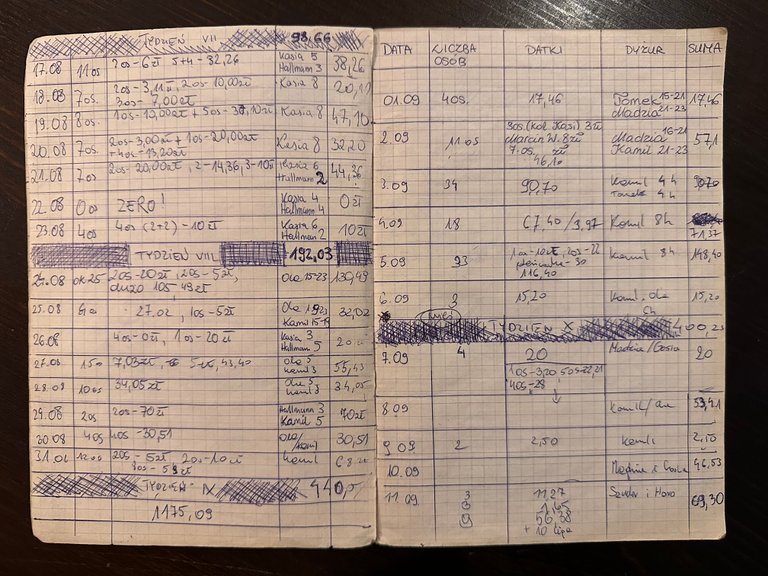 TYDZIEŃ VII 98,66
17.08 11os 2os-6zł 5+4-32,26 Kasia 5 Hallmann 3 38,26
18.08 7os. 2os-3,11zł, 2os-10,00zł 3os-7,00zł Kasia 8
19.08 8os. 1os-10,00zł + 5os- Kasia 8 47,10
20.08 7os 2os-3,00zł + 1os-20,00zł +4os-13,20zł Kasia 8 32,20
21.08 7os 2os-20,00zł, 2-14,36, 3-10zł Kasia 6 Hallmann 2 44,36
22.08 0os ZERO! Kasia 4 Hallmann 4 0zł
23.08 4os 4os (2+2)-10zł Kasia 6 Hallman 2 10zł
TYDZIEŃ VIII 192,03
24.08 ok 25 20s-20zł, 20s-5zł, dużo 105,49zł Ola 15-23 130,49
25.08 27,02, 1os-5zł Ola Kamil 15-19 32,02
26.08 4os-0zł, 1os-20zł Kasia 3 Hallmann 5 20
27.08 15o 7,03zł, 5zł, 43,40 Ola 5 Kamil 3 55,43
28.08 10os 34,05zł Ola 5 Kamil 3 34,05
29.08 2os 2os-70zł Hallmann 3 Kamil 5 70zł
30.08 4os 4os-30,51 Ola/Kamil 30,51
2os-5zł 2os-10zł Kamil
TYDZIEŃ IX
1175,09
DATA LICZBA OSÓB DATKI DYŻUR SUMA
01.09 4os. 17,46 Tomek 15-21 Madzia 21-23 17,46
2.09 11os 3os (kol. Kasi) 3zł Marcin W. 8zł 7.os, zł 46,10 Madzia 16-21 Kamil 21-23 57,1
3.09 34 90,70 Kamil 4h Tomek 4h 90,70
4.09 18 67,40/3,97 Kamil 8h 71,37
5.09 93 1os-10zł, 2os-22 -30 116,40 Kamil 8h 148,40
6.09 3 15,20 Kamil. Ola 15,20
TYDZIEŃ X 400,23
7.09 4 20 Madzia/Gosia 20
1os-3,20 5os-22,21
4os-28
8.09 Kamil/ 53,41
9.09 2 2,50 Kamil 2,50
10.09 Madzia i Gosia 46,53
11.09 3 11,27 69,30
3 1,65
9 56,38
+ 10 lipa